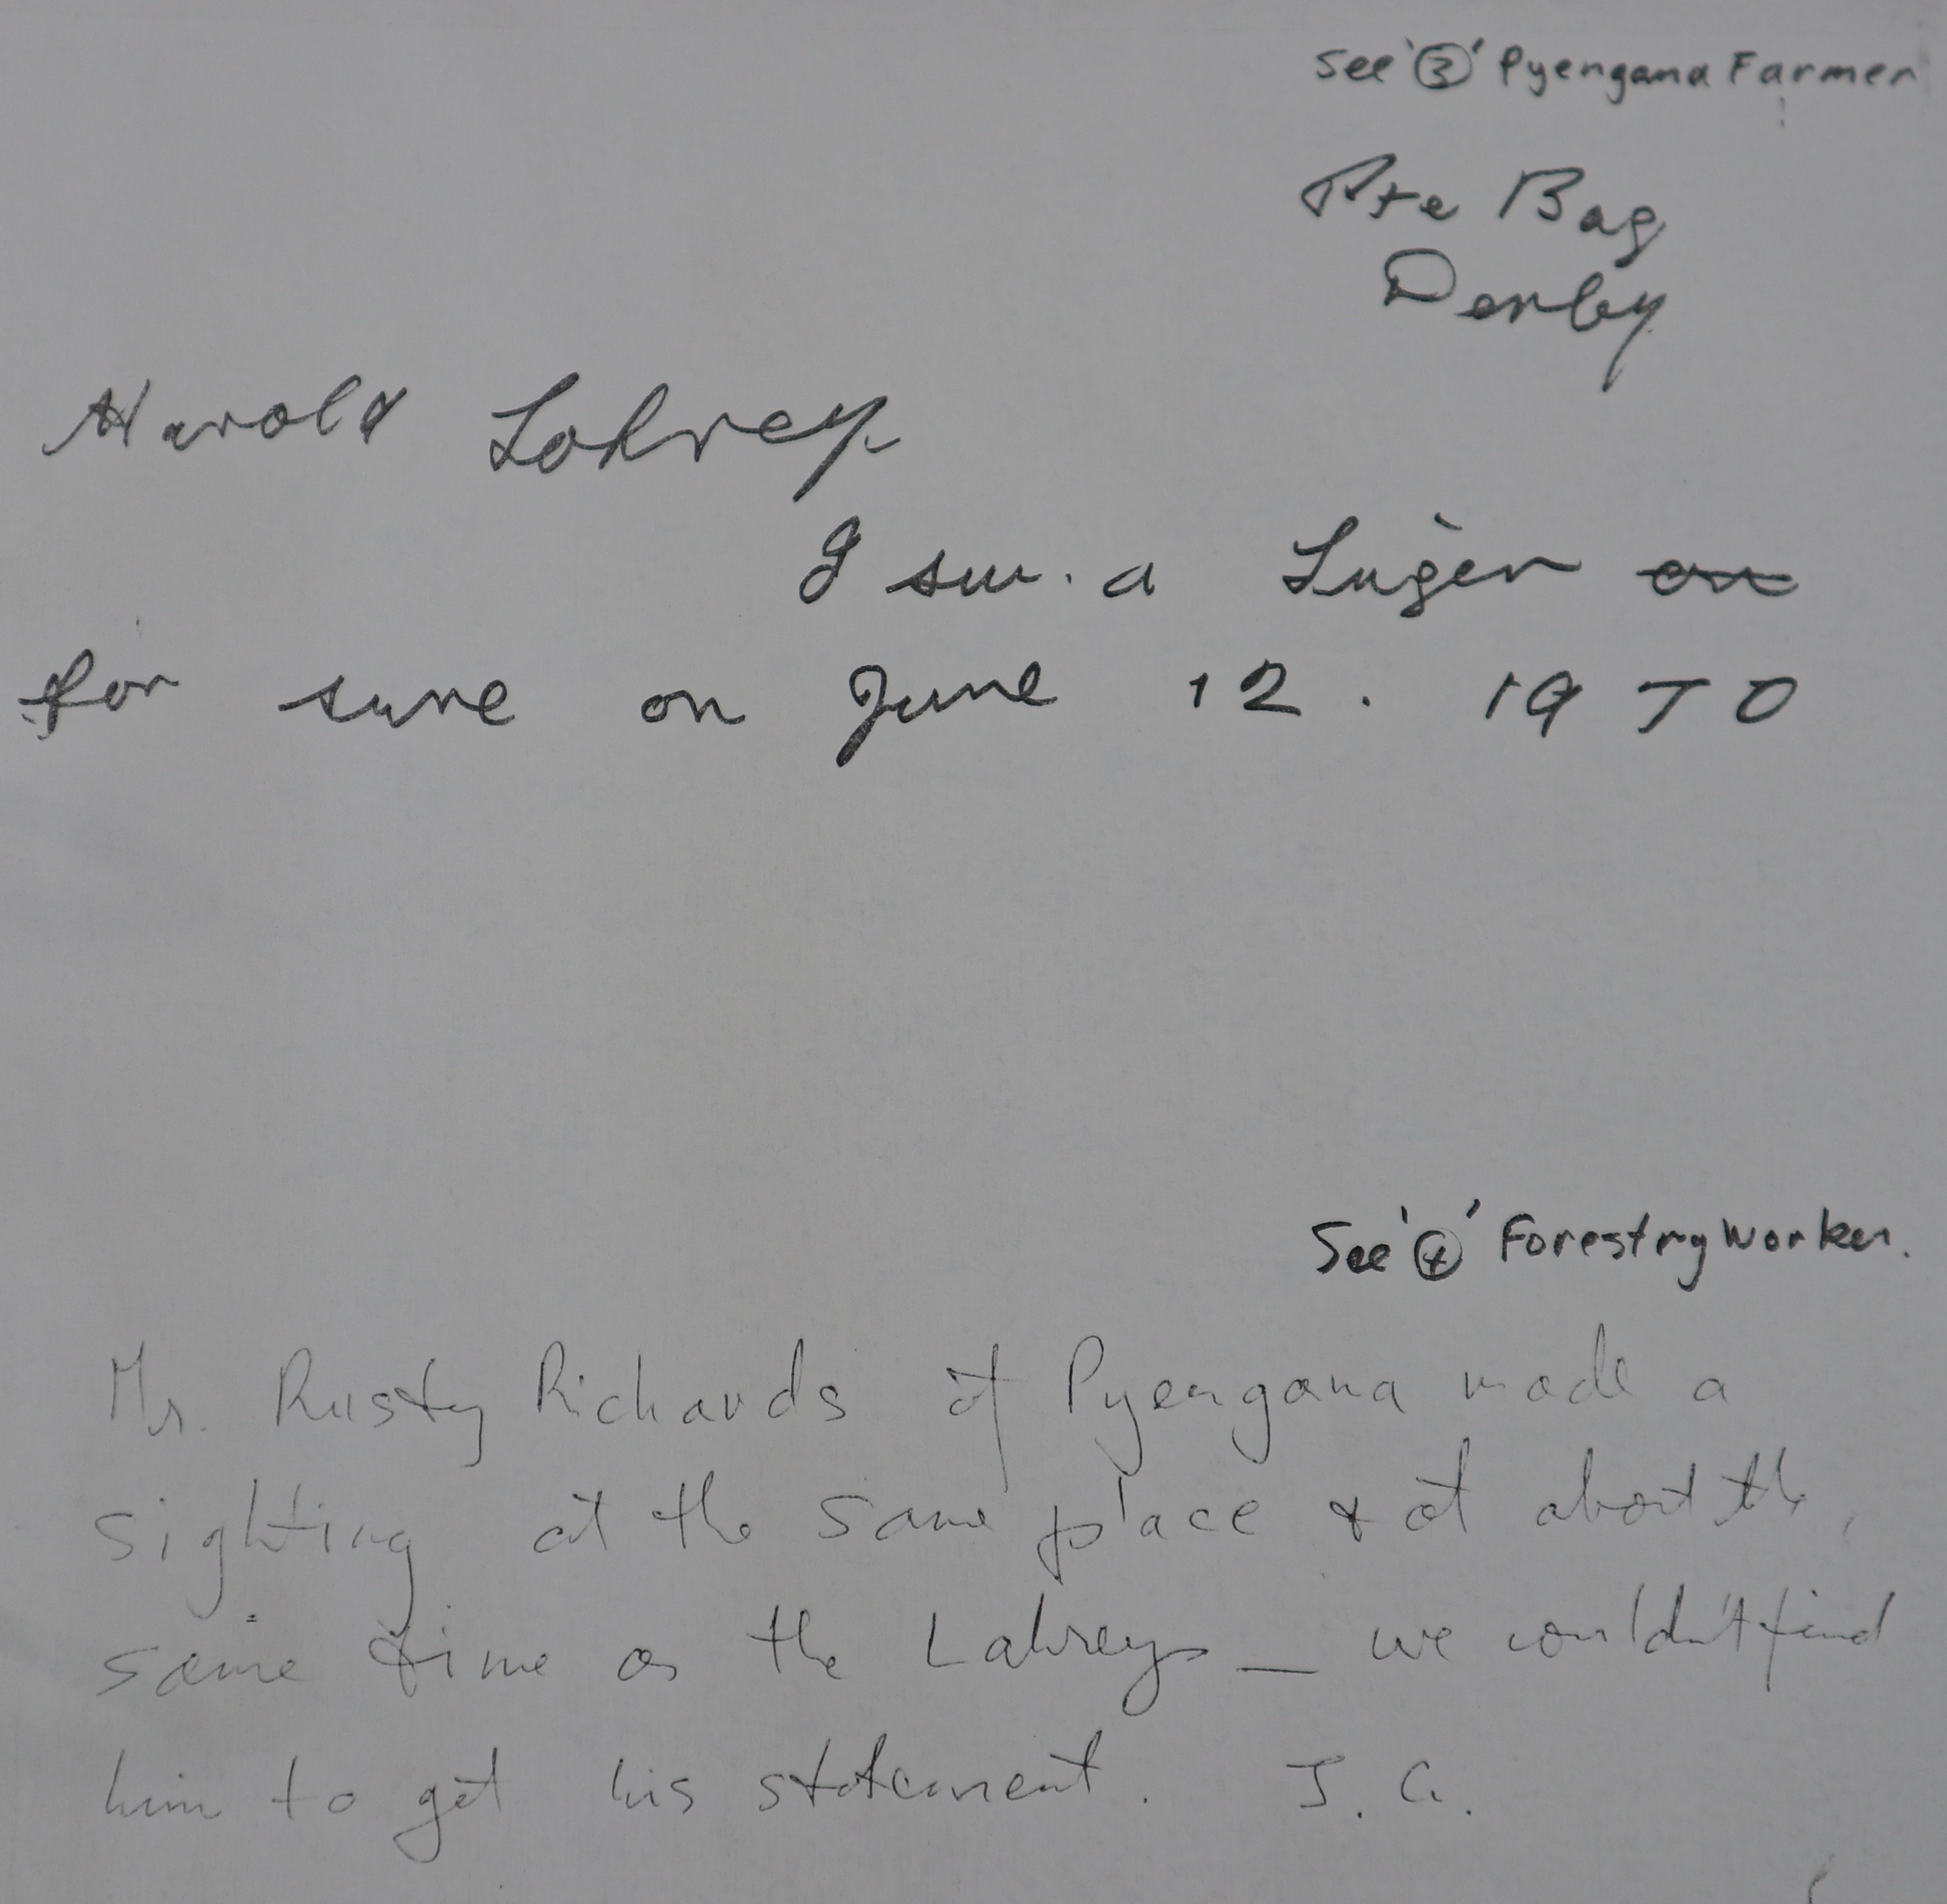 See '③' Pyengana Farmer
Pte Bag
Derby
Harold Lohrey
I saw. a Tiger on
for sure on June 12. 1970
See '④' Forestry Worker.
Mr. Rusty Richards of Pyengana made a
sighting at the same place & at about the
same time as the Lahreys — we couldn't find
him to get his statement. J. G.